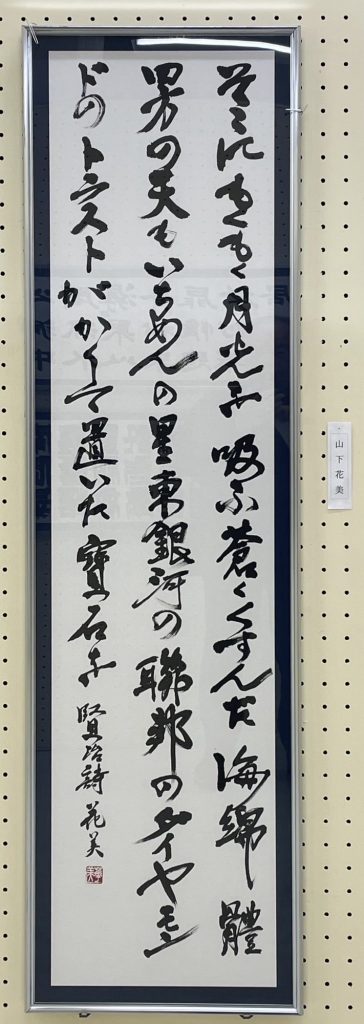 そこにもくもく月光を吸ふ蒼くくすんだ海綿體
男の天もいちめんの星東銀河の聯邦のダイヤモン
ドのトラストがかくして置いた寶石を 賢治詩 花美
山下花美